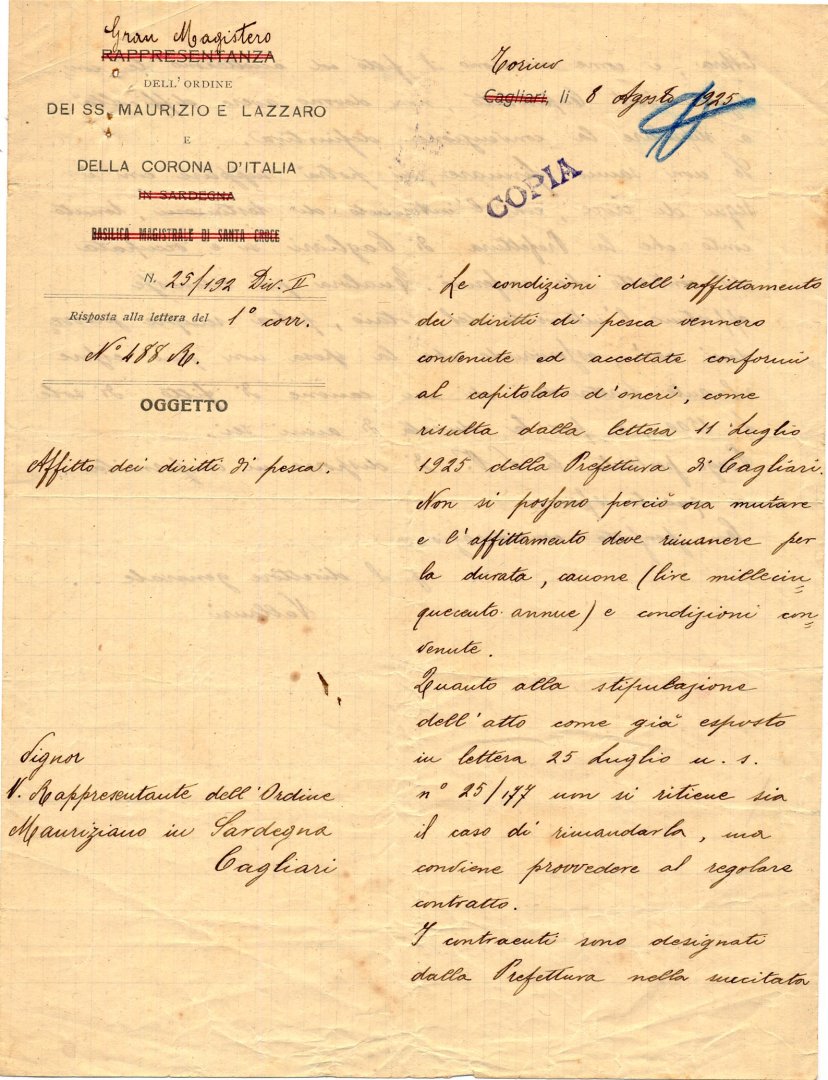 Gran Magistero
RAPPRESENTANZA
DELL'ORDINE
DEI SS. MAURIZIO E LAZZARO
E
DELLA CORONA D'ITALIA
IN SARDEGNA
BASILICA MAGISTRALE DI SANTA CROCE
N. 25/192 Div. II
Risposta alla lettera del 1° corr.
N° 488 R.
OGGETTO
Affitto dei diritti di pesca.
Signor
V. Rappresentante dell'Ordine
Mauriziano in Sardegna
Cagliari
Torino
Cagliari, li 8 Agosto 1925
COPIA
Le condizioni dell'affittamento
dei diritti di pesca vennero
convenute ed accettate conformi
al capitolato d'oneri, come
risulta dalla lettera 11 Luglio
1925 della Prefettura di Cagliari.
Non si possono perciò ora mutare
e l'affittamento deve rimanere per
la durata, canone (lire millecin=
quecento annue) e condizioni con=
venute.
Quanto alla stipulazione
dell'atto come già esposto
in lettera 25 Luglio u. s.
n° 25/177 non si ritiene sia
il caso di rimandarla, ma
conviene provvedere al regolare
contratto.
I contraenti sono designati
dalla Prefettura nella succitata